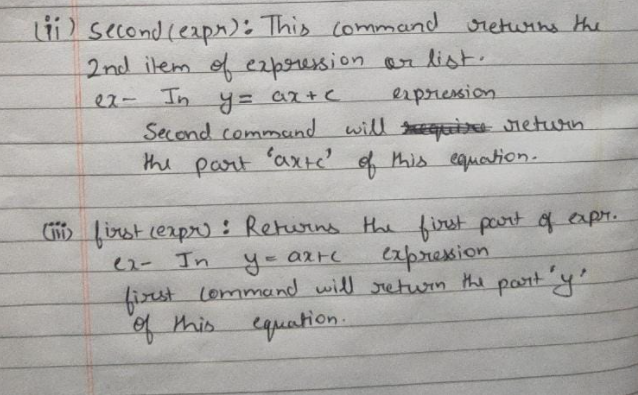 (ii) Second (expr): This command returns the
2nd item of expression or list.
ex- In y = ax+c expression
Second command will return
the part 'ax+c' of this equation.
(iii) first (expr): Returns the first part of expr.
ex- In y = ax+c expression
first command will return the part 'y'
of this equation.